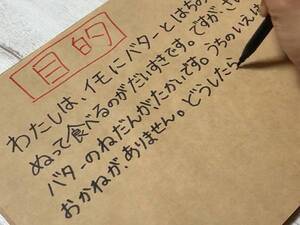 目的
わたしは、イモにバターとはちみ
ぬって食べるのがだいすきです。ですが、さ
バターのねだんがたかいです。うちのいえは
おかねが、ありません。どうしたら